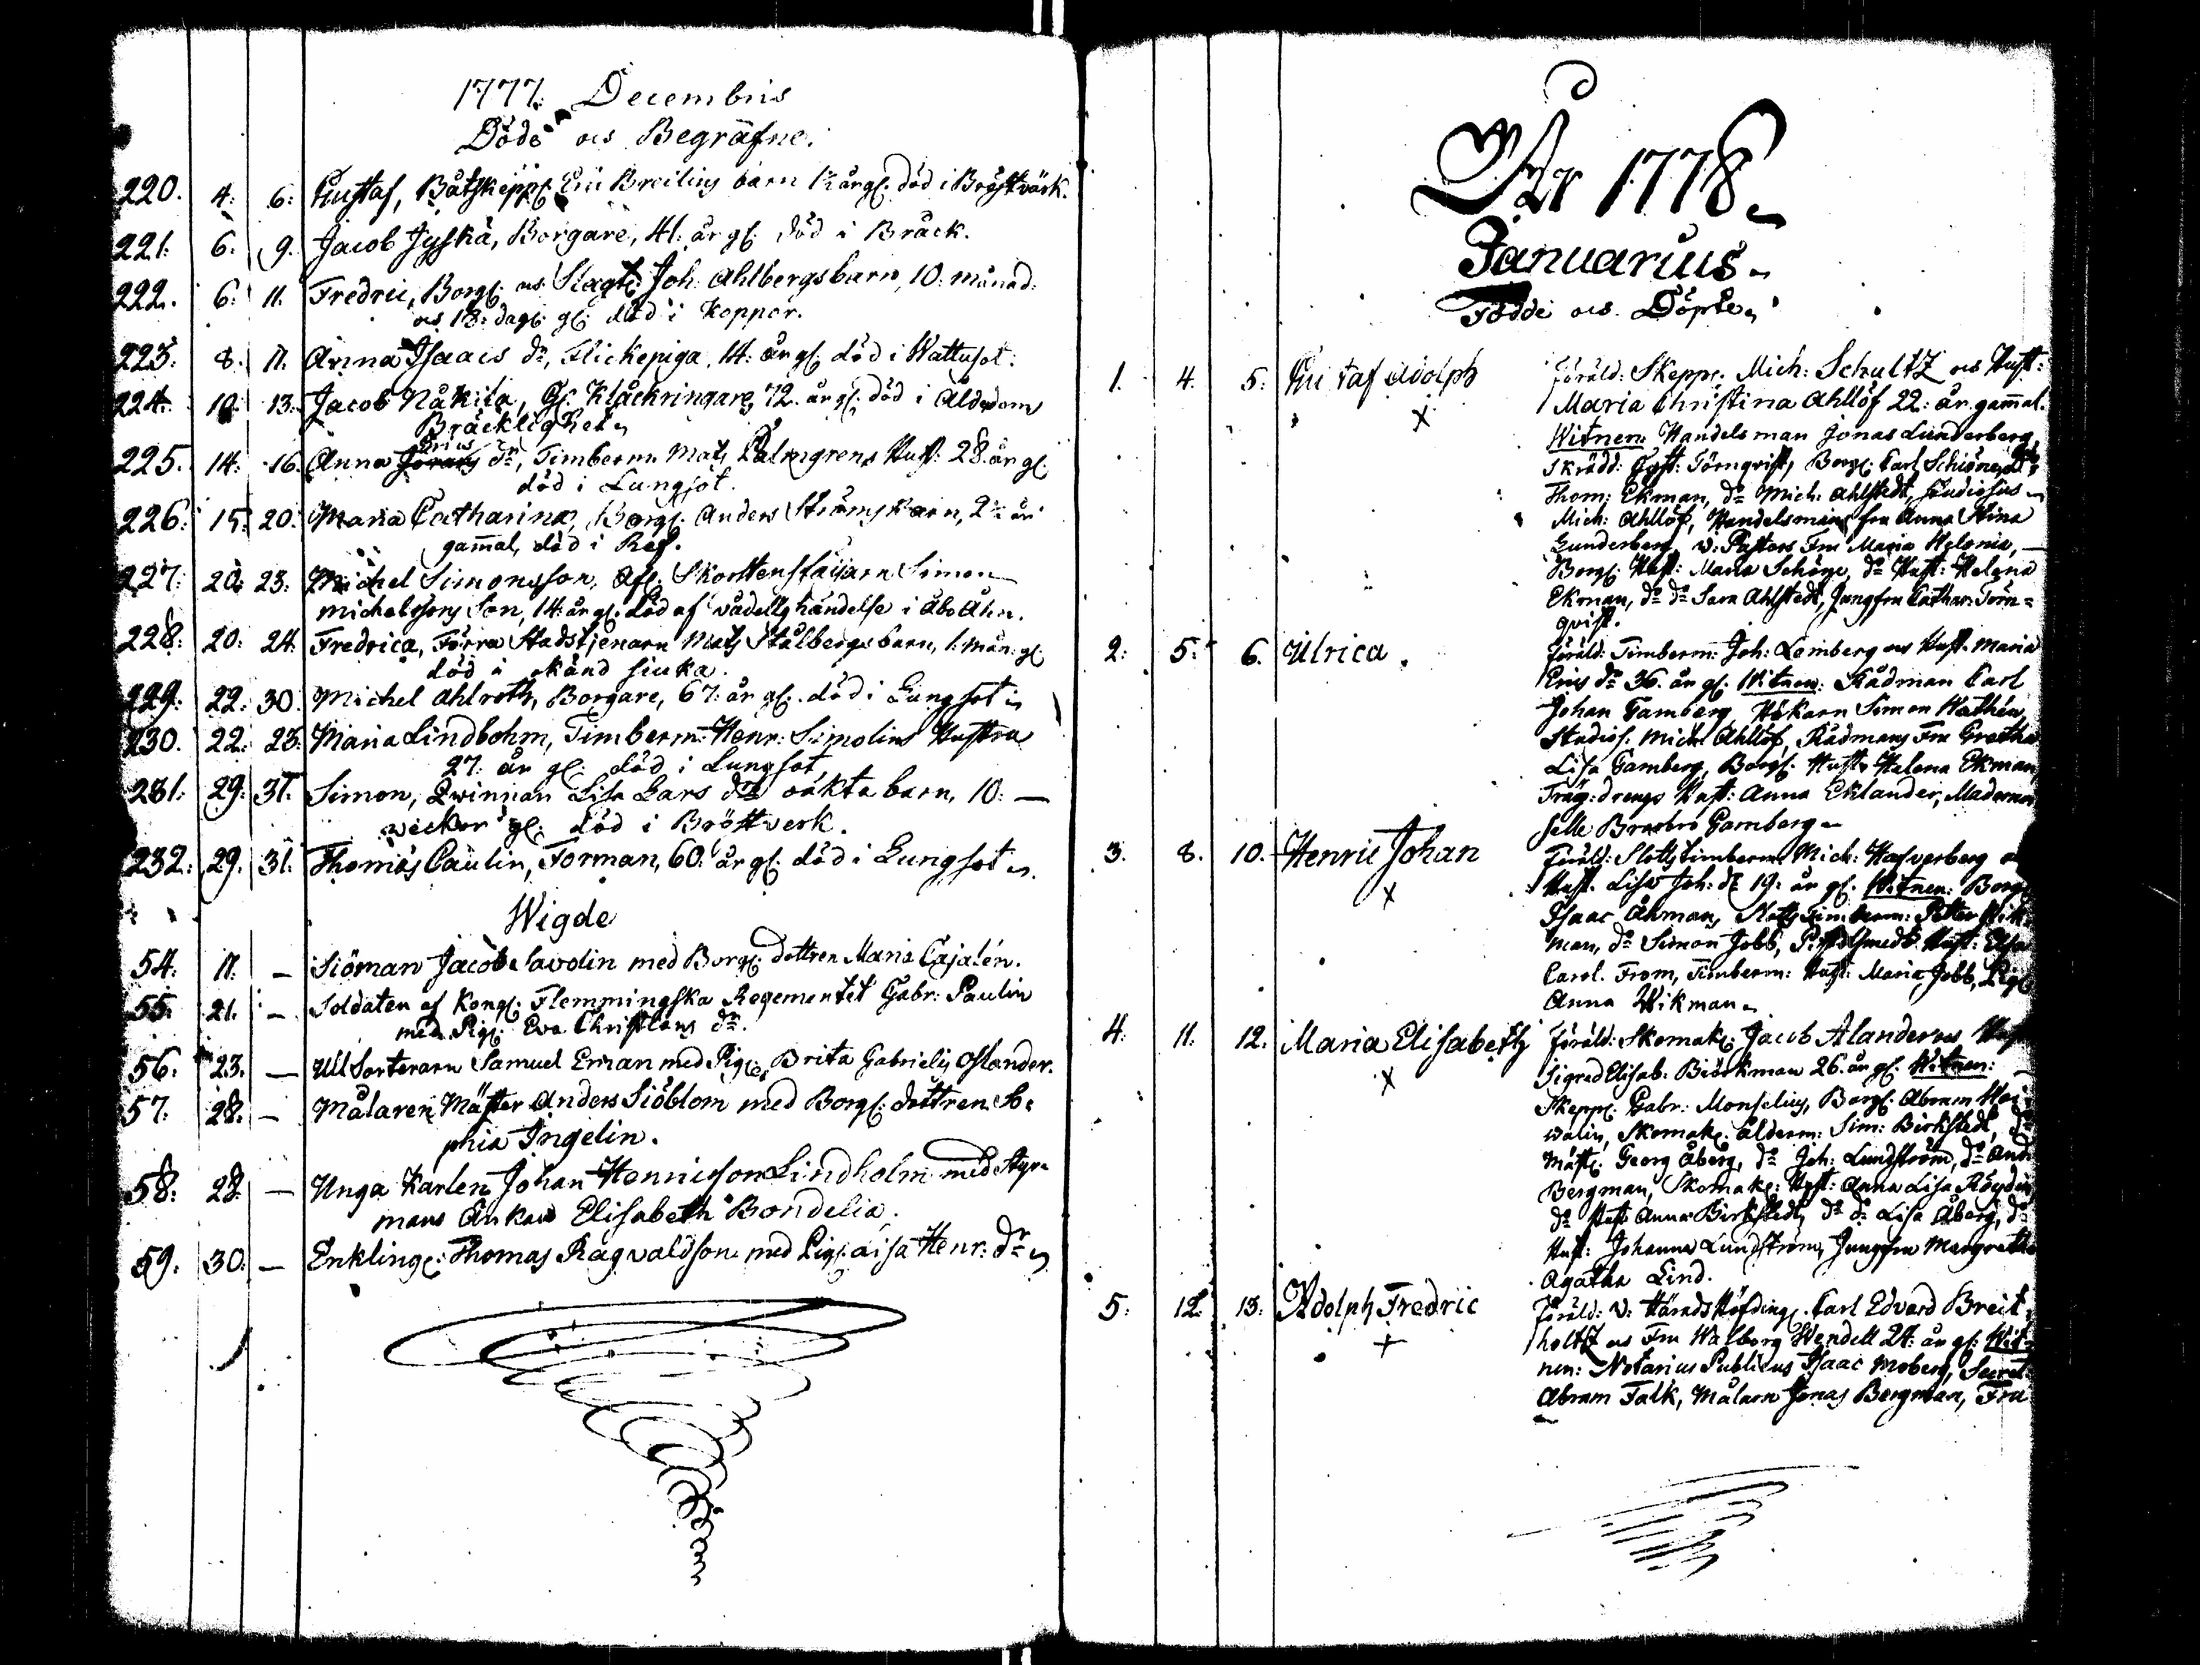 1777. Decembris
Döde och Begrafne.
220. 4. 6. Gustaf, Båtskepp: Eric Breilius barn 1½ år gl: död i Bröstvärk.
221. 6. 9. Jacob Jyskä, Borgare, 41. år gl: död i Bråck.
222. 6. 11. Fredric, Borg: och Slagt: Joh: Ahlbergs barn, 10. månad:
och 18. dag: gl: död i Koppor.
223. 8. 11. Anna Isaacs dr, Flickepiga, 14. år gl: död i Wattusot.
224. 10. 13. Jacob Näkilä, Gl: Klåckringare, 72. år gl: död i Ålderdoms
Bräcklighet
225. 14. 16. Anna Görans Erics dr, Timberm: Mats Palmgrens Hust: 28. år gl:
död i Lungsot.
226. 15. 20. Maria Catharina, Borg: Anders Ströms barn, 2½ år
gammal, död i Ref.
227. 20. 23. Michel Simonsson, Afl: Skorstensfäijarn Simon
Michelssons Son, 14. år gl: död af vådelig händelse i Åbo Åhn.
228. 20. 24. Fredrica, Förra Stadstjenarn Mats Stålbergs barn, 1. mån: gl:
död i okänd siuka.
229. 22. 30. Michel Ahlroth, Borgare, 67. år gl: död i Lungsot
230. 22. 23. Maria Lindbohm, Timberm: Henr: Simolins Hustru
27. år gl: död i Lungsot
231. 29. 31. Simon, Qwinnan Lisa Lars drs oäkta barn, 10. —
weckor gl: död i Bröstwerk.
232. 29. 31. Thomas Paulin, Forman, 60. år gl: död i Lungsot
Wigde
54. 11. — Siöman Jacob Savolin med Borg: dottren Maria Cajalén.
55. 21. — Soldaten af Kongl: Flemmingska Regementet Gabr: Paulin
med Pig: Eva Christians dr.
56. 23. — Ull Sorterarn Samuel Eman med Pig: Brita Gabrielis Oslander.
57. 28. — Målaren Mäster Anders Siöblom med Borg: dottren So-
phia Ingelin.
58. 28. — Unga Karlen Johan Henricsson Lindholm med Styr-
mans Änkan Elisabeth Bondelia.
59. 30. — Enkling: Thomas Ragvaldson med Pig: Lisa Henr: dr
År 1778
Januarius
Födde och Döpte
1. 4. 5. Gustaf Adolph
Föräld: Skepp: Mich: Schultz och Hust:
Maria Christina Ahllöf 22. år gammal.
Witnen: Handelsman Jonas Lunderberg,
Skrädd: Gust: Törnqvist, Borg: Carl Schiöne,
Thom: Ekman, do Mich: Ahlstedt, Studiosus
Mich: Ahllöf, Handelsmans fru Anna Stina
Lunderberg, V: Pastors Fru Maria Helenia,
Borg: Hust: Maria Schöne, do Hust: Helena
Ekman, do do Sara Ahlstedt, Jungfru Cathar: Törn=
qvist.
2. 5. 6. Ulrica
Föräld: Timberm: Joh: Lomberg och Hust: Maria
Erics dr 36. år gl: Witnen: Rådman Carl
Johan Gamberg, Hökarn Simon Wathén,
Studios: Mich: Ahllöf, Rådmans Fru Gretha
Lisa Gamberg, Borg: Hust: Helena Ekman,
Träg: drengs Hust: Anna Eklander, Mademoi
selle Barbro Gamberg
3. 8. 10. Henric Johan
Föräld: Slotts timberm: Mich: Hafverberg
Hust: Lisa Joh: dr 19. år gl: Witnen: Borg:
Isaac Åhman, Slotts Timberm: Petter Wik-
man, do Simon Jobb, Pistolsmeds Hust: Elsa
Carol: From, Timberm: Hust: Maria Jobb, Pig:
Anna Wikman
4. 11. 12. Maria Elisabeth
Föräld: Skomak: Jacob Alander och Hust
Sigred Elisab: Biörkman 26. år gl: Witnen:
Skepp: Gabr: Monselius, Borg: Abram
walin, Skomak: Ålderm: Sim: Birkstedt, do
Mäst: Georg Åberg, do Joh: Lundström, do And
Bergman, Skomak: Hust: Anna Lisa
do Hust Anna Birkstedt, do do Lisa Åberg, do
Hust: Johanna Lundström, Jungfru Margretha
Agatha Lind.
5. 12. 13. Adolph Fredric
Föräld: V: Härads Höfding: Carl Edvard Breit
holtz och Fru Walborg Wendell 24. år gl: Wit-
nen: Notarius Publicus Isaac Moberg, Secret:
Abram Falk, Målarn Jonas Bergman, Fru